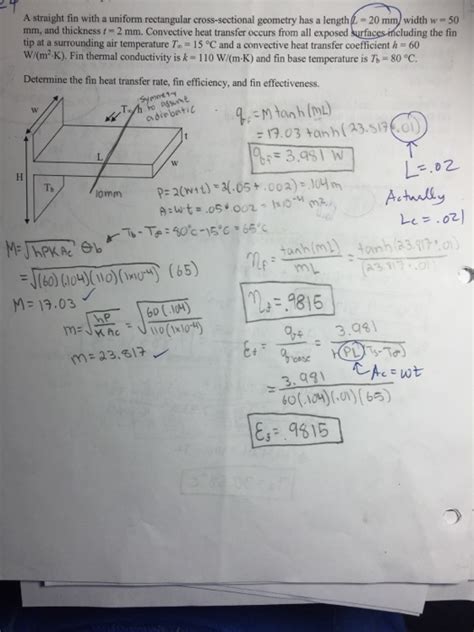 24
A straight fin with a uniform rectangular cross-sectional geometry has a length L = 20 mm, width w = 50
mm, and thickness t = 2 mm. Convective heat transfer occurs from all exposed surfaces including the fin
tip at a surrounding air temperature T∞ = 15 °C and a convective heat transfer coefficient h = 60
W/(m²·K). Fin thermal conductivity is k = 110 W/(m·K) and fin base temperature is Tb = 80 °C.
Determine the fin heat transfer rate, fin efficiency, and fin effectiveness.
symmetry
to assume
adiabatic
T∞, h
w
t
L
w
H
Tb
10mm
q_f = M tanh(mL)
= 17.03 tanh(23.817*.01)
q_f = 3.981 W
L = .02
Actually
Lc = .021
P = 2(w+t) = 2(.05+.002) = .104 m
A = w·t = .05*.002 = 1x10^-4 m²
Tb - T∞ = 80°C - 15°C = 65°C
M = √hPKAc θb
= √(60)(.104)(110)(1x10^-4) (65)
M = 17.03 ✓
m = √hP/KAc = √60(.104)/110(1x10^-4)
m = 23.817 ✓
η_f = tanh(mL)/mL = tanh(23.817*.01)/(23.817*.01)
η_f = .9815
ε_f = q_f/q_base = 3.981/h(PL)(Tb-T∞)
Ac = wt
= 3.981/60(.104)(.01)(65)
ε_f = .9815